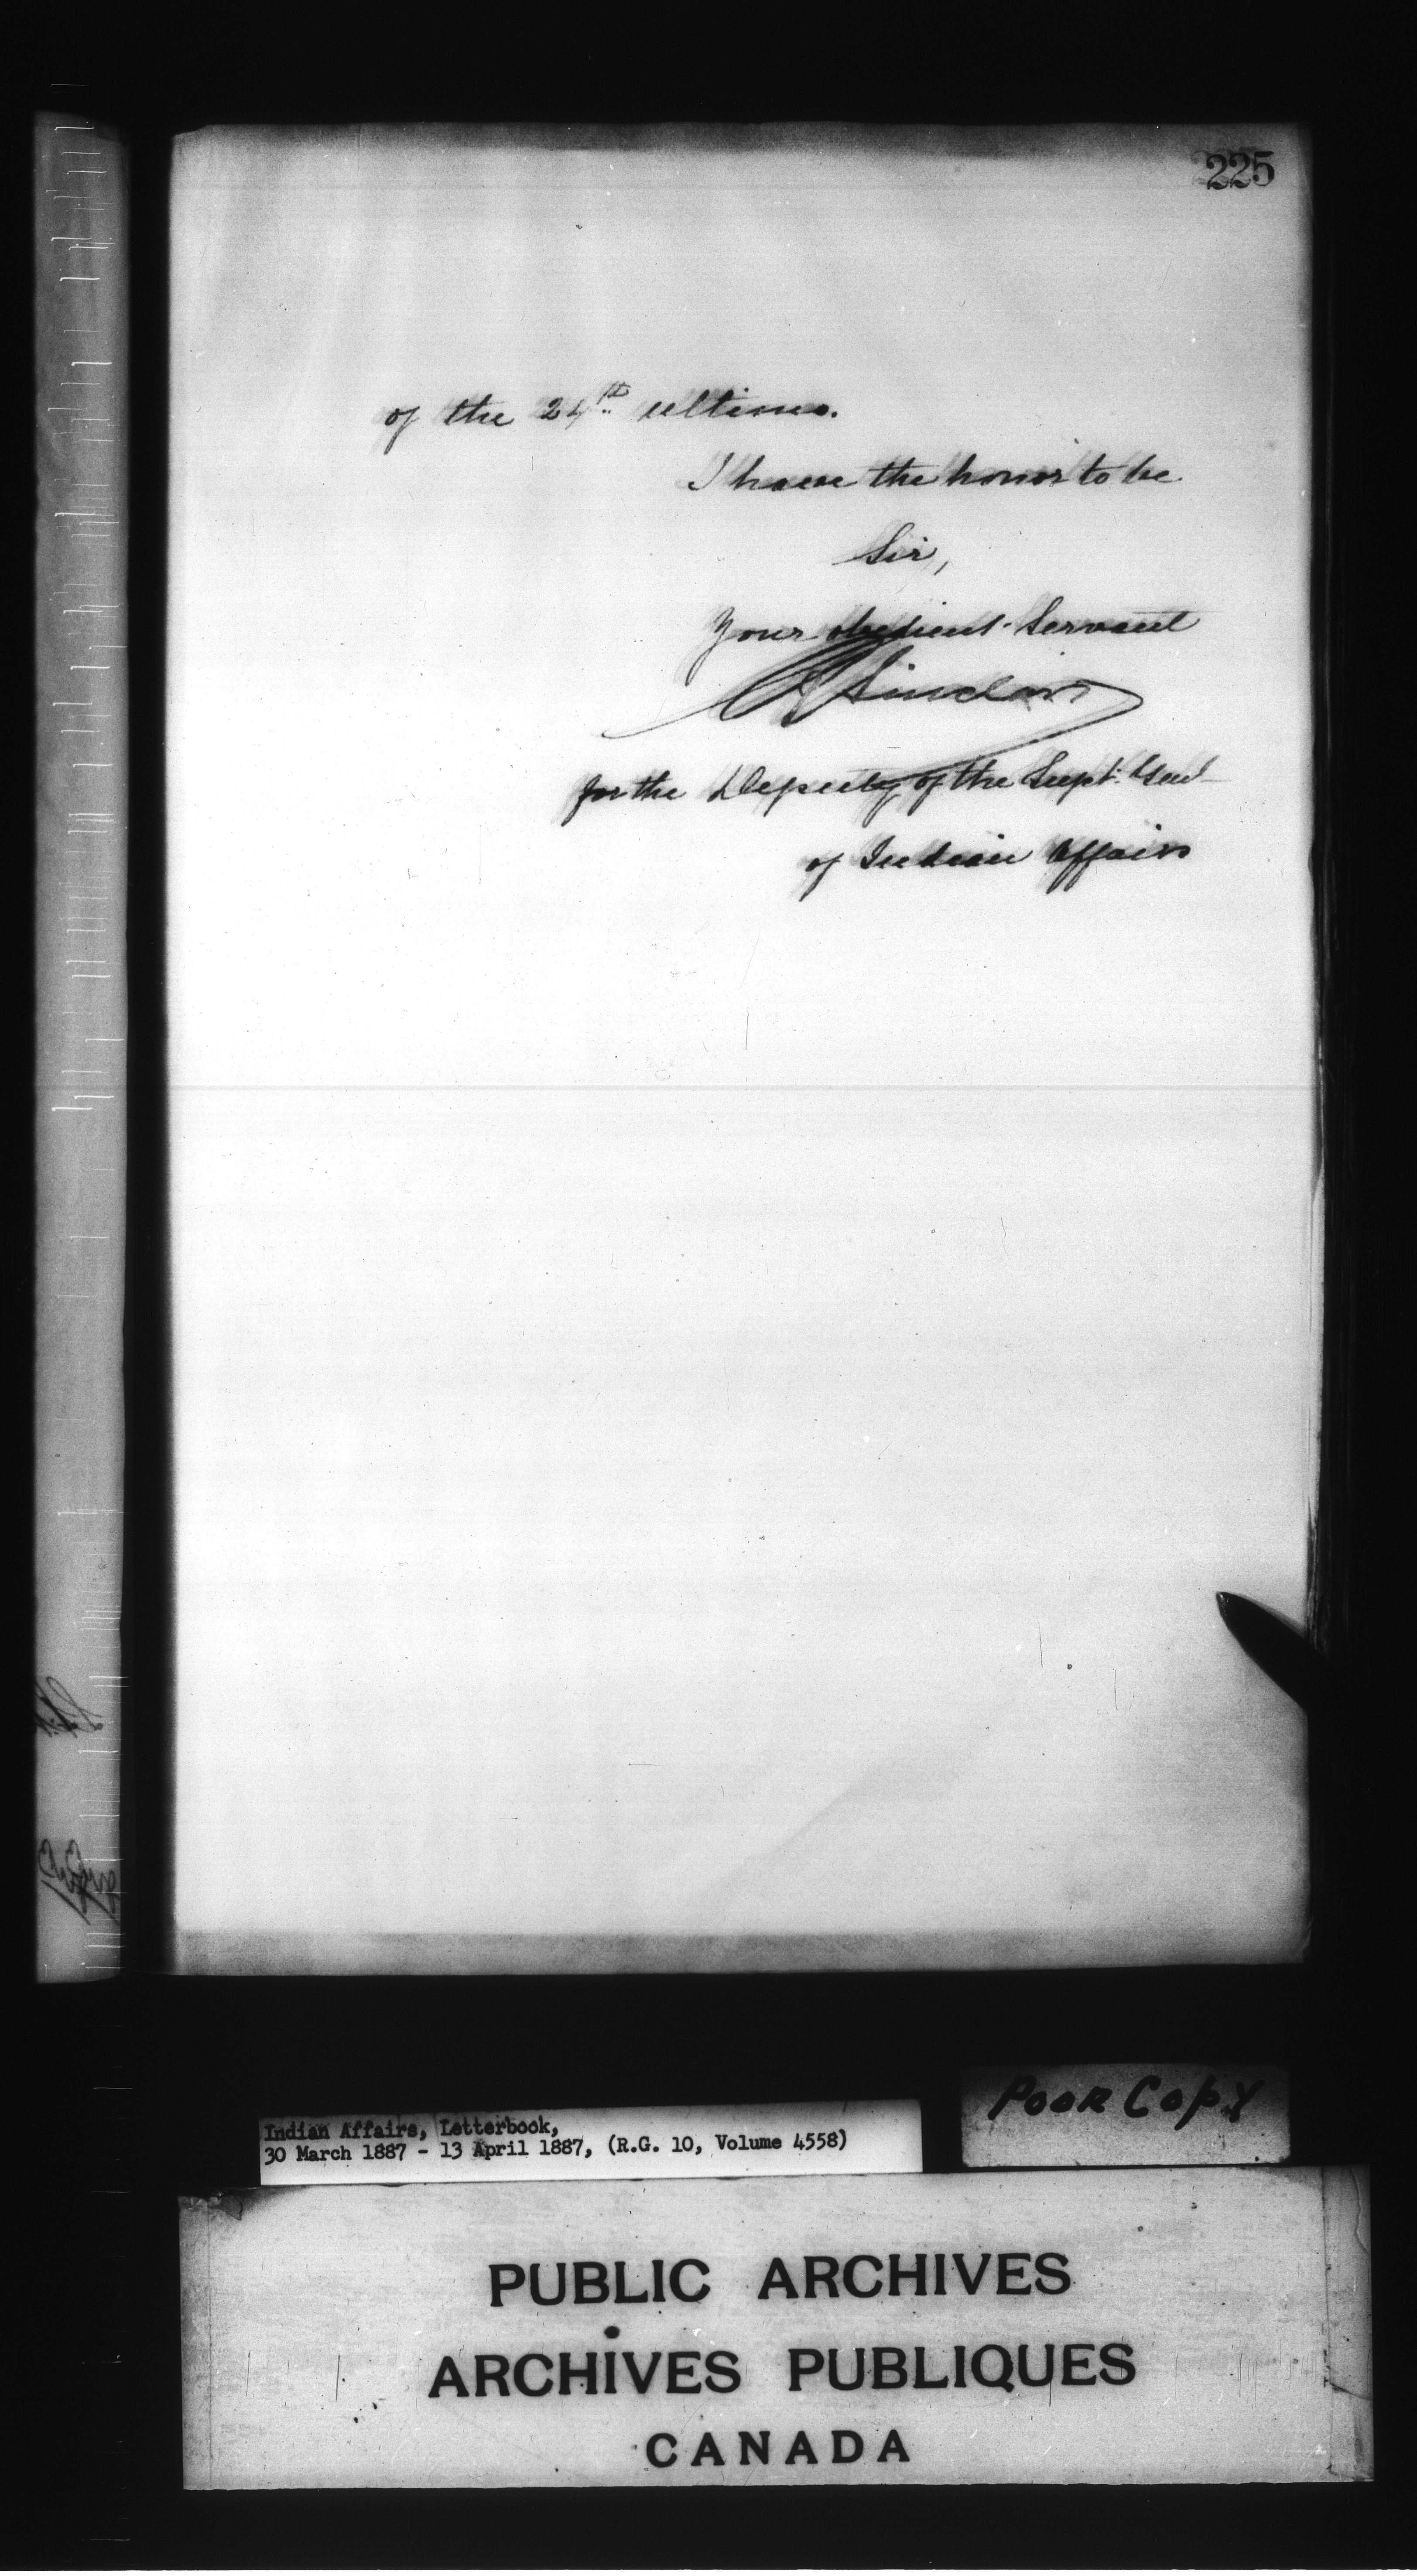 225
of the 24th ultimo.
I have the honor to be
Sir,
Your obedient Servant
Sinclair
for the Deputy of the Supt. Genl
of Indian Affairs
Poor Copy
Indian Affairs, Letterbook,
30 March 1887 - 13 April 1887, (R.G. 10, Volume 4558)
PUBLIC ARCHIVES
ARCHIVES PUBLIQUES
CANADA